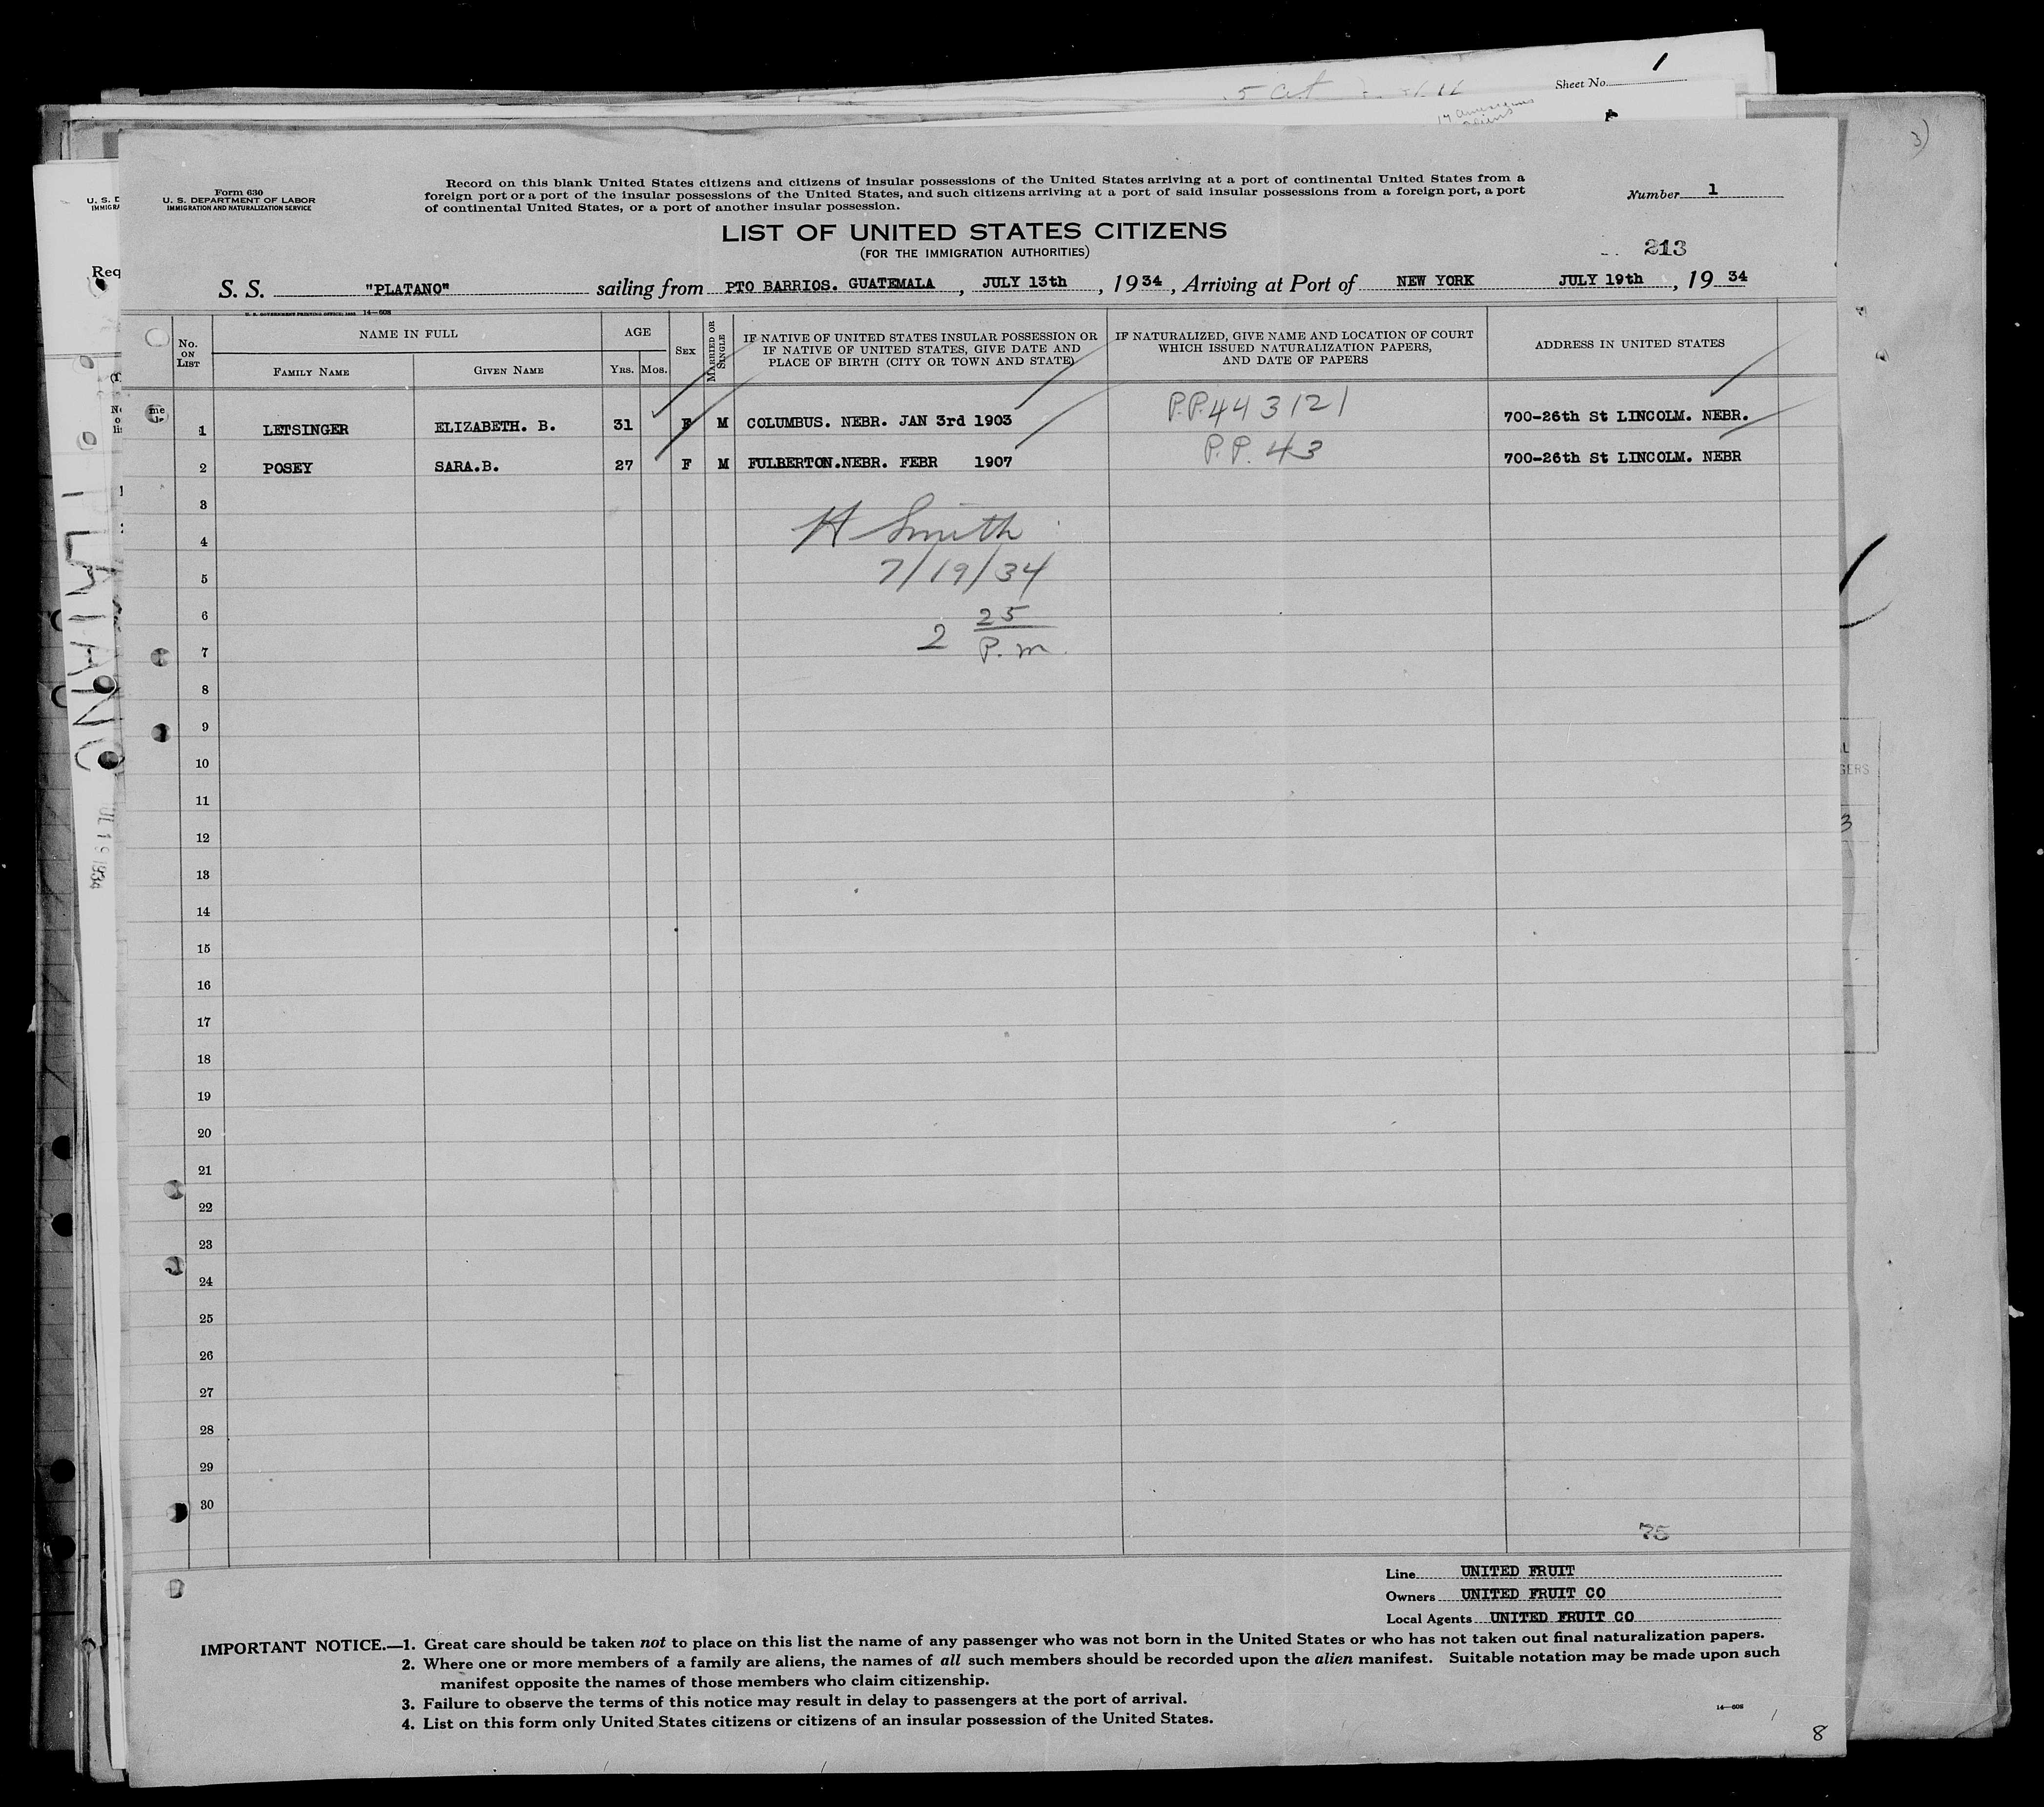 Sheet No. 1
Form 630
U. S. DEPARTMENT OF LABOR
IMMIGRATION AND NATURALIZATION SERVICE
Record on this blank United States citizens and citizens of insular possessions of the United States arriving at a port of continental United States from a
foreign port or a port of the insular possessions of the United States, and such citizens arriving at a port of said insular possessions from a foreign port, a port
of continental United States, or a port of another insular possession.
Number 1
LIST OF UNITED STATES CITIZENS
(FOR THE IMMIGRATION AUTHORITIES)
213
S. S. "PLATANO" sailing from PTO BARRIOS. GUATEMALA, JULY 13th, 1934, Arriving at Port of NEW YORK JULY 19th, 1934
No. ON LIST
NAME IN FULL
FAMILY NAME
GIVEN NAME
AGE
YRS.
MOS.
SEX
MARRIED OR SINGLE
IF NATIVE OF UNITED STATES INSULAR POSSESSION OR
IF NATIVE OF UNITED STATES, GIVE DATE AND
PLACE OF BIRTH (CITY OR TOWN AND STATE)
IF NATURALIZED, GIVE NAME AND LOCATION OF COURT
WHICH ISSUED NATURALIZATION PAPERS,
AND DATE OF PAPERS
ADDRESS IN UNITED STATES
1 LETSINGER ELIZABETH. B. 31 F M COLUMBUS. NEBR. JAN 3rd 1903 P.P. 443121 700-26th St LINCOLM. NEBR.
2 POSEY SARA.B. 27 F M FULBERTON.NEBR. FEBR 1907 P.P. 43 700-26th St LINCOLM. NEBR
3
H Smith
4
7/19/34
5
6
2 25
P.m.
7
8
9
10
11
12
13
14
15
16
17
18
19
20
21
22
23
24
25
26
27
28
29
30
75
Line UNITED FRUIT
Owners UNITED FRUIT CO
Local Agents UNITED FRUIT CO
IMPORTANT NOTICE.—1. Great care should be taken not to place on this list the name of any passenger who was not born in the United States or who has not taken out final naturalization papers.
2. Where one or more members of a family are aliens, the names of all such members should be recorded upon the alien manifest. Suitable notation may be made upon such
manifest opposite the names of those members who claim citizenship.
3. Failure to observe the terms of this notice may result in delay to passengers at the port of arrival.
4. List on this form only United States citizens or citizens of an insular possession of the United States.
14—608
8
PLATANO